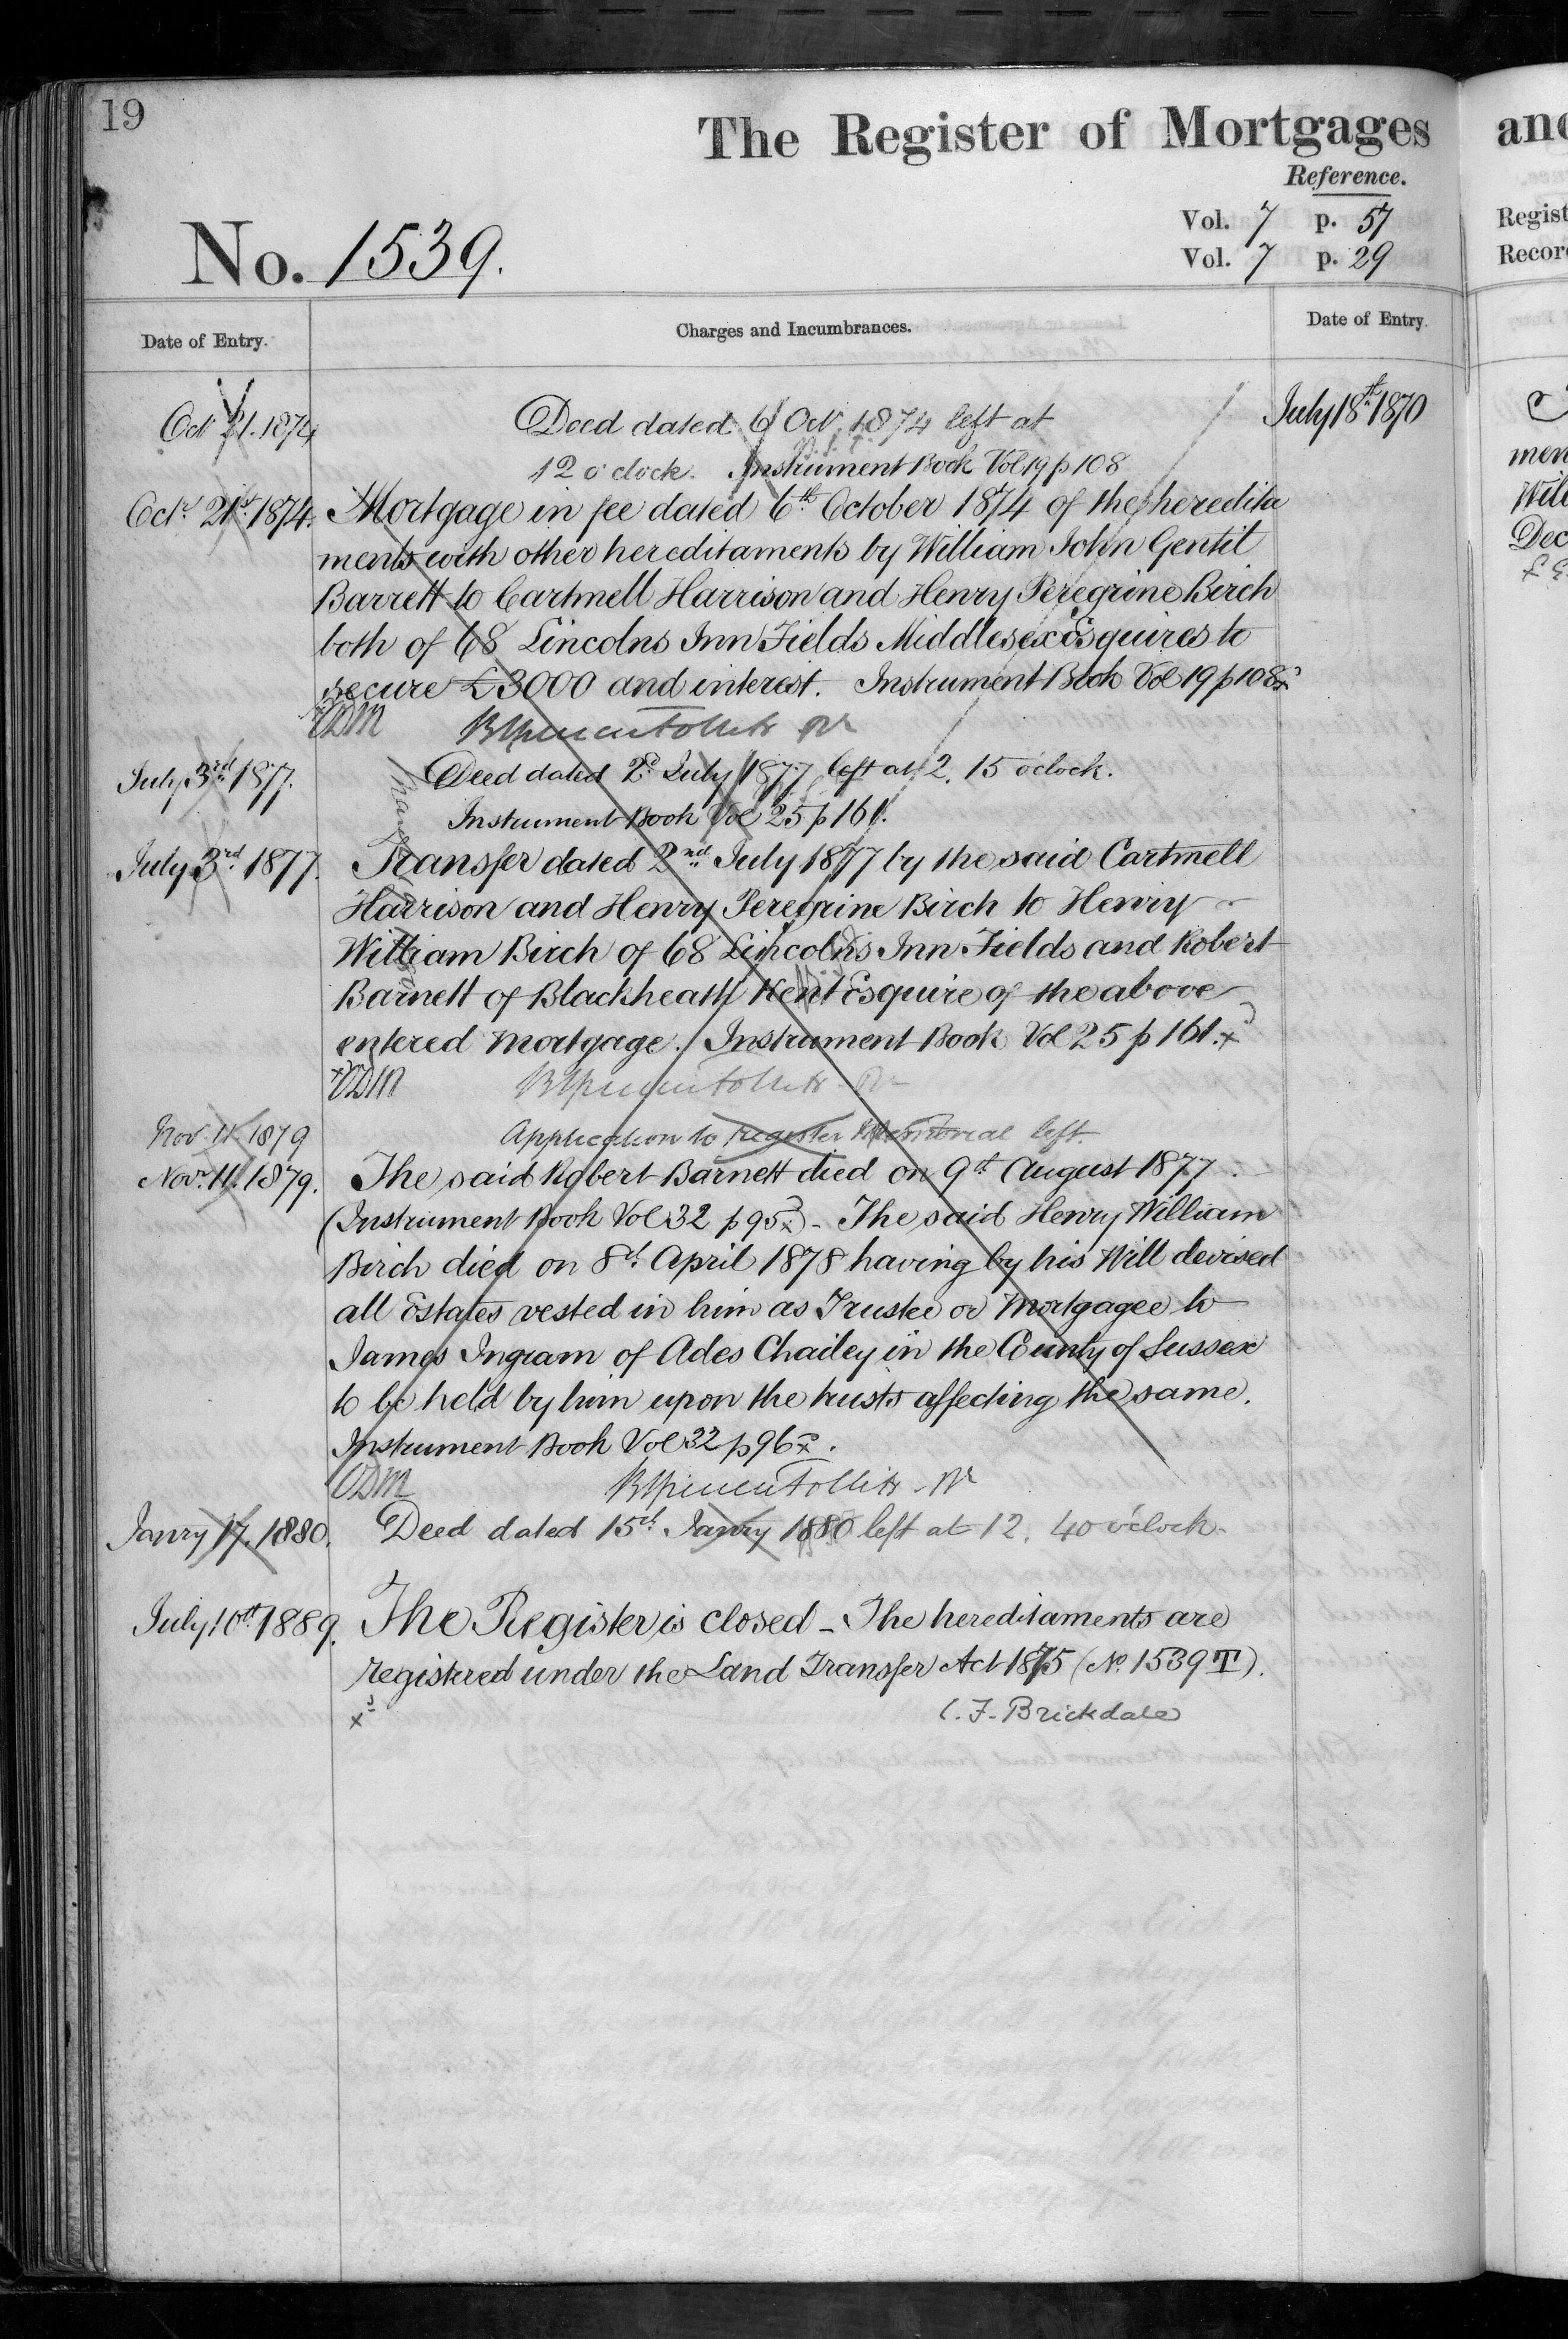 19
The Register of Mortgages
and
Reference.
Vol. 7 p. 57
Vol. 7 p. 29
No. 1539.
Date of Entry.
Charges and Incumbrances.
Date of Entry.
July 18th 1870
Oct 21. 1874
Deed dated 6 Oct. 1874 left at
12 o'clock. Instrument Book Vol 19 p 108
Octr. 21st 1874. Mortgage in fee dated 6th October 1874 of the heredita
ments with other hereditaments by William John Gentil
Barrett to Cartmell Harrison and Henry Peregrine Birch
both of 68 Lincolns Inn Fields Middlesex Esquires to
secure £3000 and interest. Instrument Book Vol 19 p 108
July 3rd 1877. Deed dated 2d. July 1877 left at 2. 15 o'clock.
Instrument Book Vol 25 p 161.
July 3rd 1877. Transfer dated 2nd July 1877 by the said Cartmell
Harrison and Henry Peregrine Birch to Henry
William Birch of 68 Lincolns Inn Fields and Robert
Barnett of Blackheath Kent Esquire of the above
entered Mortgage. Instrument Book Vol 25 p 161.
Nov. 11. 1879 Application to register left.
Novr. 11. 1879. The said Robert Barnett died on 9th August 1877.
(Instrument Book Vol 32 p 95) - The said Henry William
Birch died on 8th April 1878 having by his Will devised
all Estates vested in him as Trustee or Mortgagee to
James Ingram of Ades Chailey in the County of Sussex
to be held by him upon the trusts affecting the same.
Instrument Book Vol 32 p 96.
Janry 17. 1880. Deed dated 15th Janry 1880 left at 12. 40 o'clock.
July 10th 1889. The Register is closed - The hereditaments are
registered under the Land Transfer Act 1875 (No. 1539 T).
C. F. Brickdale
Regist
Recor
men
Wil
Dec